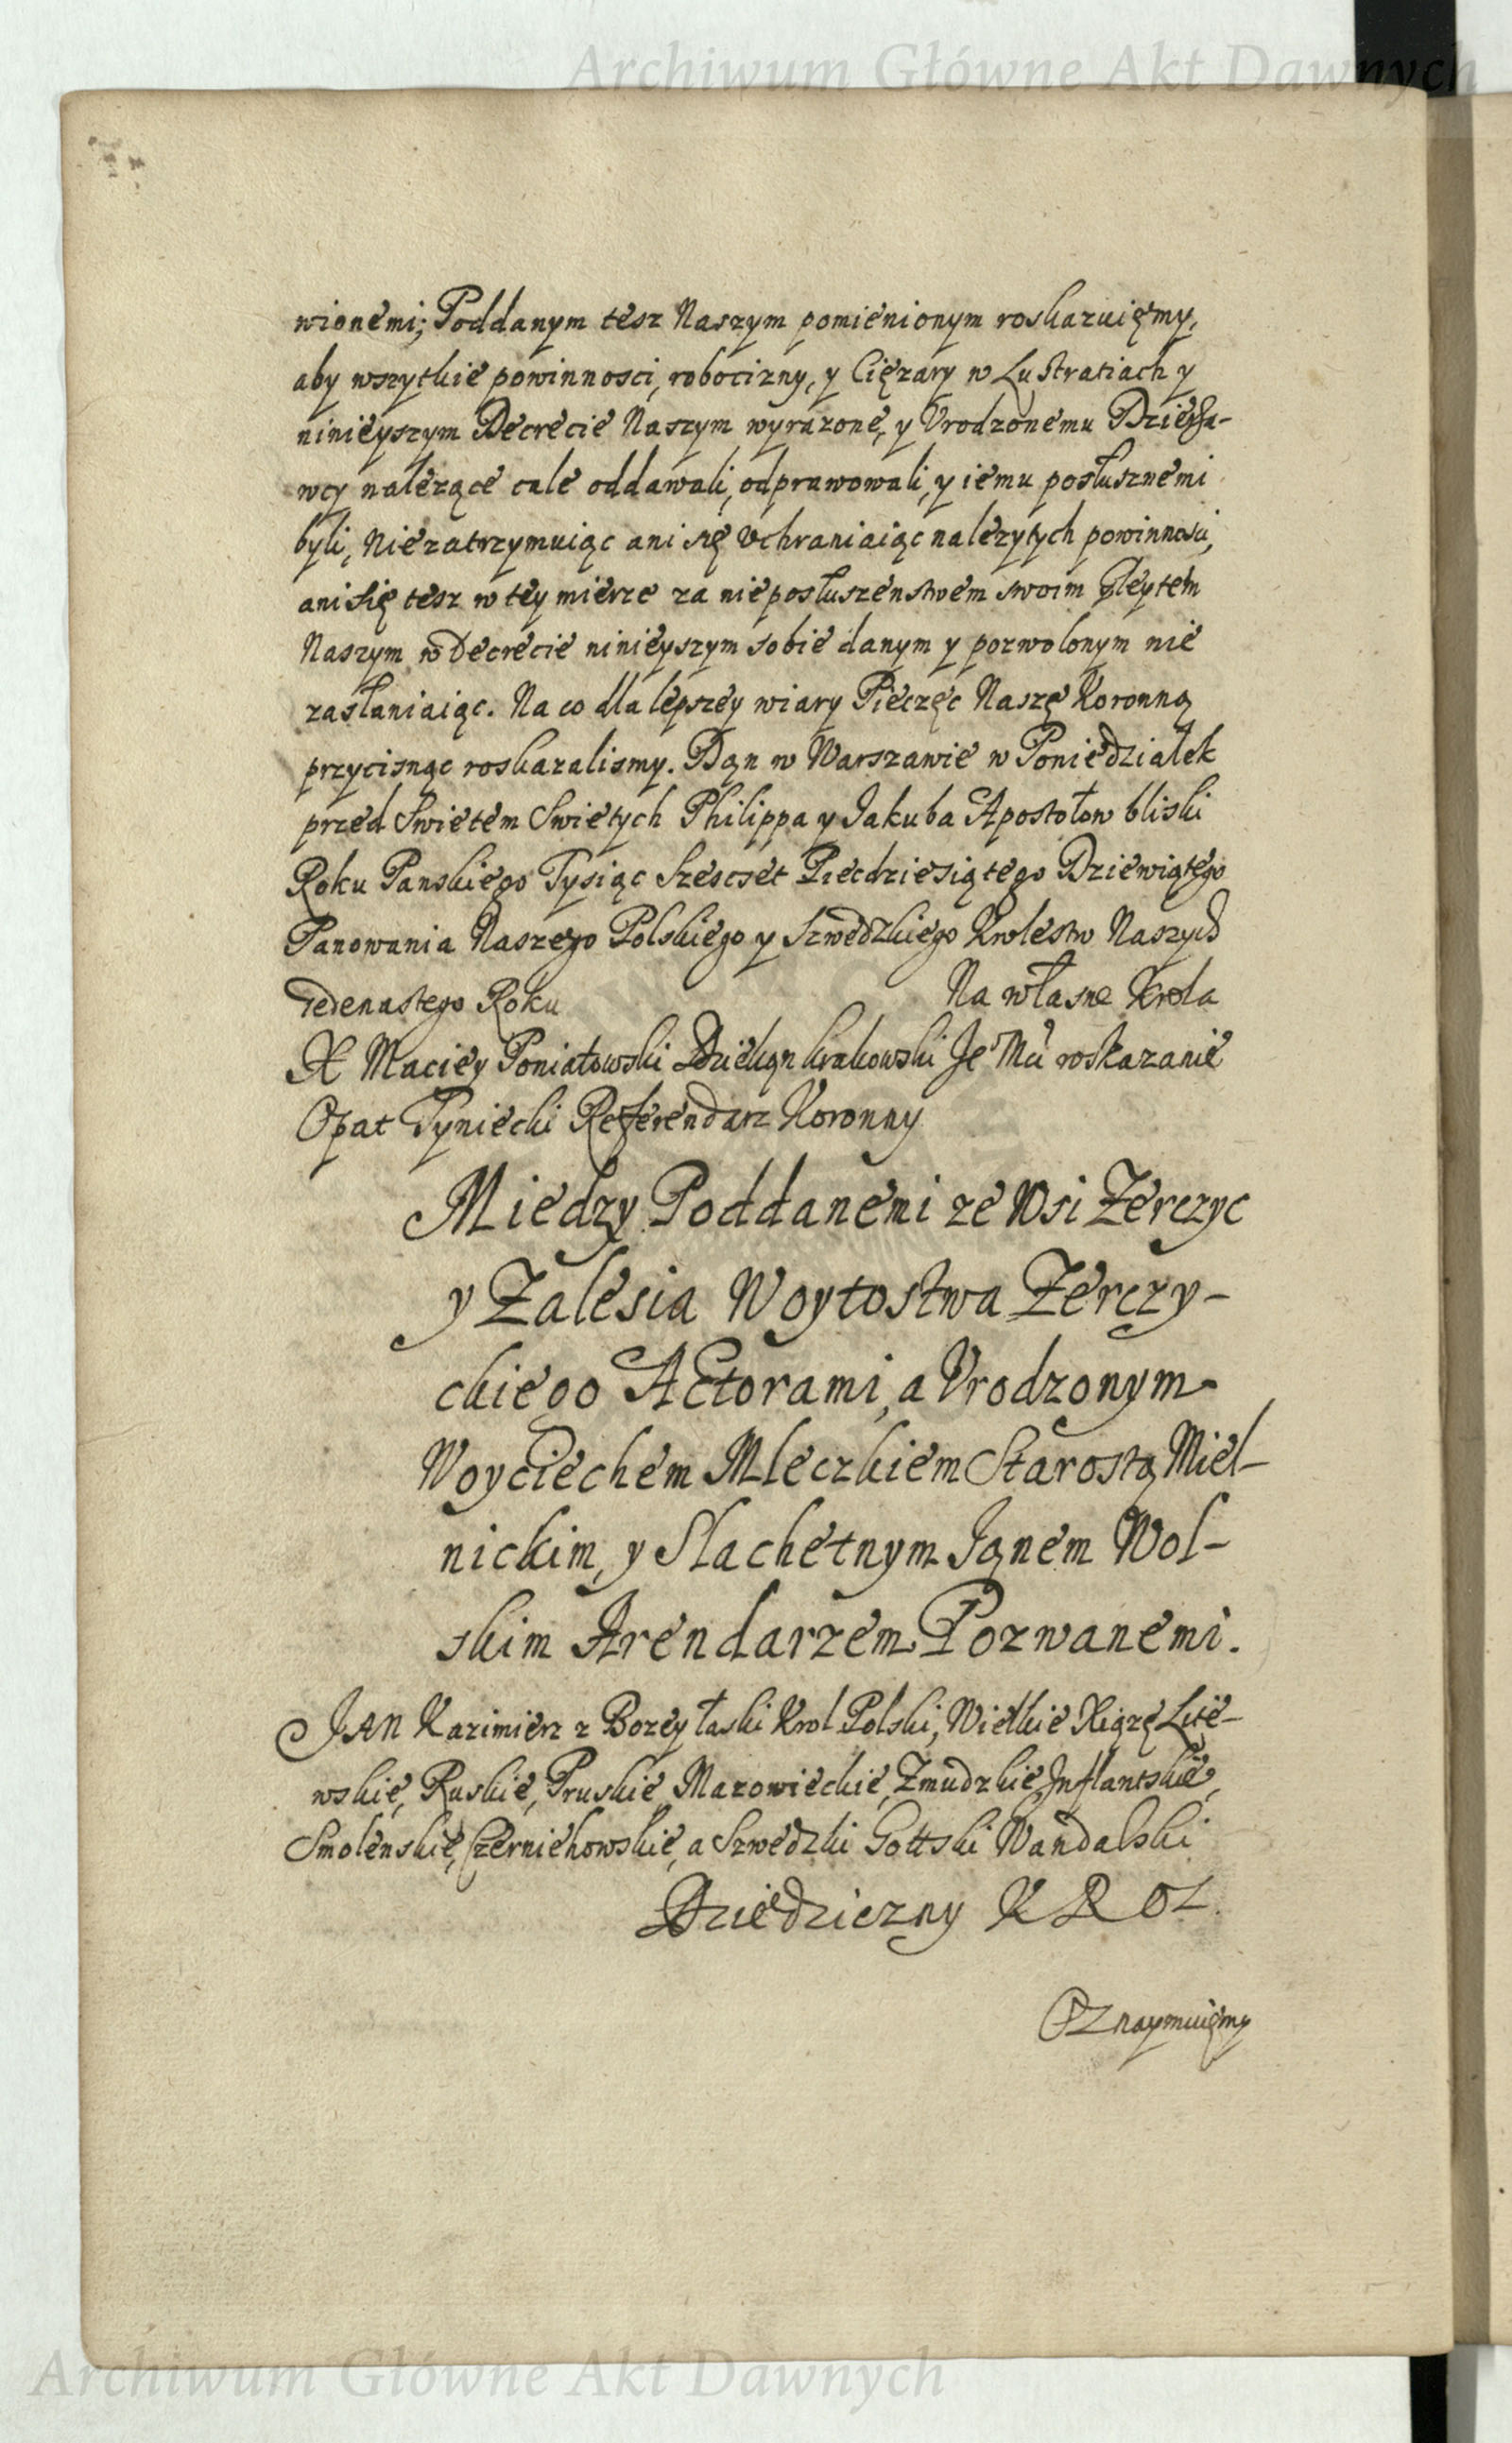 Archiwum Główne Akt Dawnych
wionemi; Poddanym tesz Naszym pomienionym roskazuięmy,
aby wszytkie powinnosci, robocizny, y Cięzary w Lustratiach y
ninieyszym Decrecie Naszym wyrazone, y Vrodzonemu Dzierza-
wcy nalezące cale oddawali, odprawowali, y iemu posłusznemi
byli, Niezatrzymuiąc ani się vchraniaiąc nalezytych powinnosci,
ani się tesz w tey mierze za nieposłuszenstwem swoim Gleytem
Naszym w Decrecie ninieyszym sobie danym y pozwolonym nie
zasłaniaiąc. Na co dla lepszey wiary Pieczęc Naszę Koronną
przycisnąc roskazalismy. Dąn w Warszawie w Poniedziałek
przed Swietem Swietych Philippa y Jakuba Apostołow bliski
Roku Panskiego Tysiąc Szescset Piecdziesiątego Dziewiątego
Panowania Naszego Polskiego y Szwedzkiego Krolestw Naszych
Jedenastego Roku Na własne Krola
X Maciey Poniatowski Dziekąn Krakowski Je Mci roskazanie
Opat Tyniecki Referendarz Koronny
Miedzy Poddanemi ze Wsi Zerczyc
y Zalesia Woytostwa Zerczy-
ckiego Actorami, a Vrodzonym
Woyciechem Mleczkiem Starostą Miel-
nickim, y Slachetnym Jąnem Wol-
skim Arendarzem Pozwanemi.
JAN Kazimierz z Bozey łaski Krol Polski, Wielkie Xiązę Lite-
wskie, Ruskie, Pruskie, Mazowieckie, Zmudzkie, Inflantskie,
Smolenskie, Czerniehowskie, a Szwedzki Gottski Wandalski
Dziedziczny KROL.
OZnaymuięmy
Archiwum Główne Akt Dawnych